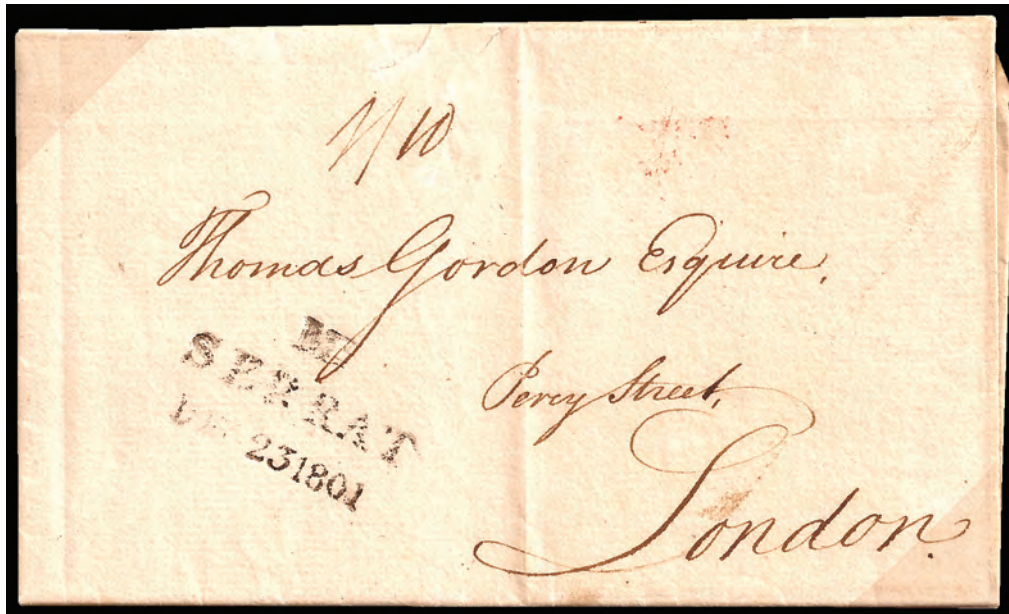 1/10
Thomas Gordon Esquire.
Percy Street,
London.
SERRAT
DE 23 1801